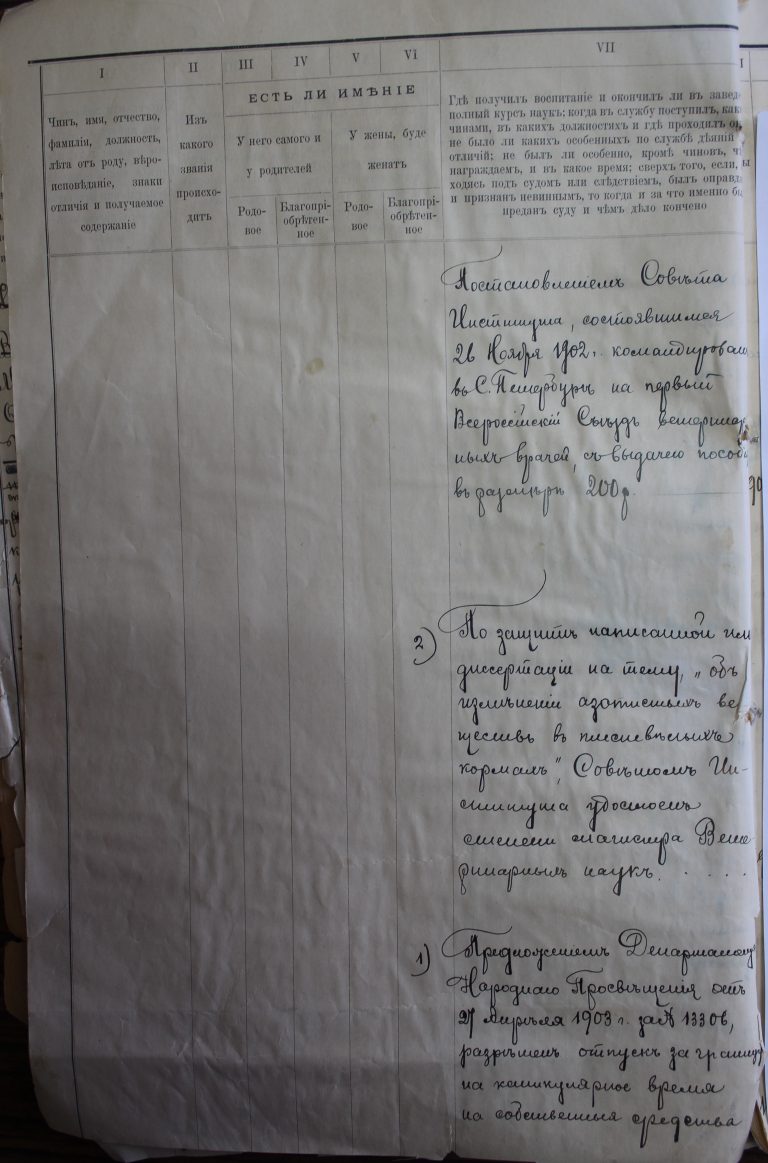 I II III IV V VI VII
Чинъ, имя, отчество,
фамилія, должность,
лѣта отъ роду, вѣро-
исповѣданіе, знаки
отличія и получаемое
содержаніе
Изъ
какого
званія
происхо-
дитъ
ЕСТЬ ЛИ ИМѢНІЕ
У него самого и
у родителей
У жены, буде
женатъ
Родо-
вое
Благопрі-
обрѣтен-
ное
Родо-
вое
Благопрі-
обрѣтен-
ное
Гдѣ получилъ воспитаніе и окончилъ ли въ завед
полный курсъ наукъ; когда въ службу поступилъ, как
чинами, въ какихъ должностяхъ и гдѣ проходилъ он
не было ли какихъ особенныхъ по службѣ дѣяній
отличій; не былъ ли особенно, кромѣ чиновъ, ч
награждаемъ, и въ какое время; сверхъ того, если,
ходясь подъ судомъ или слѣдствіемъ, былъ оправд
и признанъ невиннымъ, то когда и за что именно бы
преданъ суду и чѣмъ дѣло кончено
Постановленіемъ Совѣта
Института, состоявшимся
26 Ноября 1902 г. командирован
въ С. Петербургъ на первый
Всероссійскій Съѣздъ ветеринар
ныхъ врачей, съ выдачею пособі
въ размѣрѣ 200 р.
2) По защитѣ написанной им
диссертаціи на тему, „объ
измѣненіи азотистыхъ ве
ществъ въ плесневѣлыхъ
кормахъ“, Совѣтомъ Ин-
ститута удостоенъ
степени магистра Вете
ринарныхъ наукъ. . . . . .
1) Предложеніемъ Департамент
Народнаго Просвѣщенія отъ
27 Апрѣля 1903 г. за № 13306,
разрѣшенъ отпускъ за границу
на каникулярное время
на собственныя средства